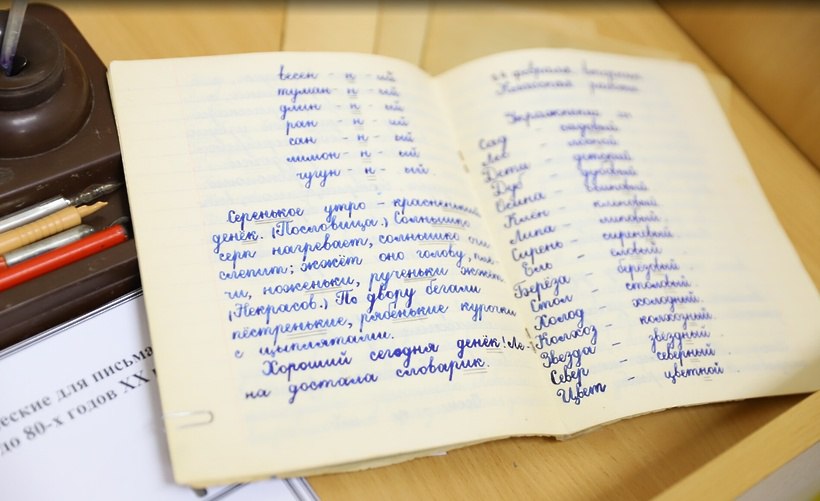 весен - н - ий
туман - н - ый
длин - н - ый
ран - н - ий
сан - н - ый
лимон - н - ый
чугун - н - ый.
Серенькое утро - красненький
денёк. (Пословица.) Солнышко
серп нагревает, солнышко очи
слепит; жжёт оно голову, пле-
чи, ноженьки, рученьки жжёт.
(Некрасов.) По двору бегали
пёстренькие, рябенькие курочки
с цыплятами.
Хороший сегодня денёк! Ле-
на достала словарик.
Классная работа
Упражнение
Сад - садовый
Лес - лесной
Дети - детский
Дуб - дубовый
Осина - осиновый
Клён - кленовый
Липа - липовый
Сирень - сиреневый
Ель - еловый
Берёза - берёзовый
Стол - столовый
Холод - холодный
Колхоз - колхозный
Звезда - звёздный
Север - северный
Цвет - цветной
еские для письма
до 80-х годов XX